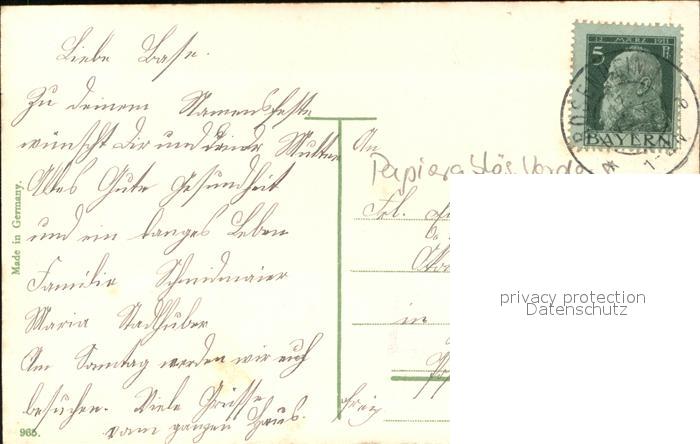 Liebe Base.
Zu deinem Namensfeste
wünscht dir und deiner Mutter
Alles Gute Gesundheit
und ein langes Leben
Familie Schmidmaier
Maria Stadhuber
Am Sonntag werden wir euch
besuchen. Viele Grüsse
vom ganzen Haus.
Made in Germany.
965.
12. MÄRZ 1911
5 Pf
BAYERN
An
Frl.
in
privacy protection
Datenschutz